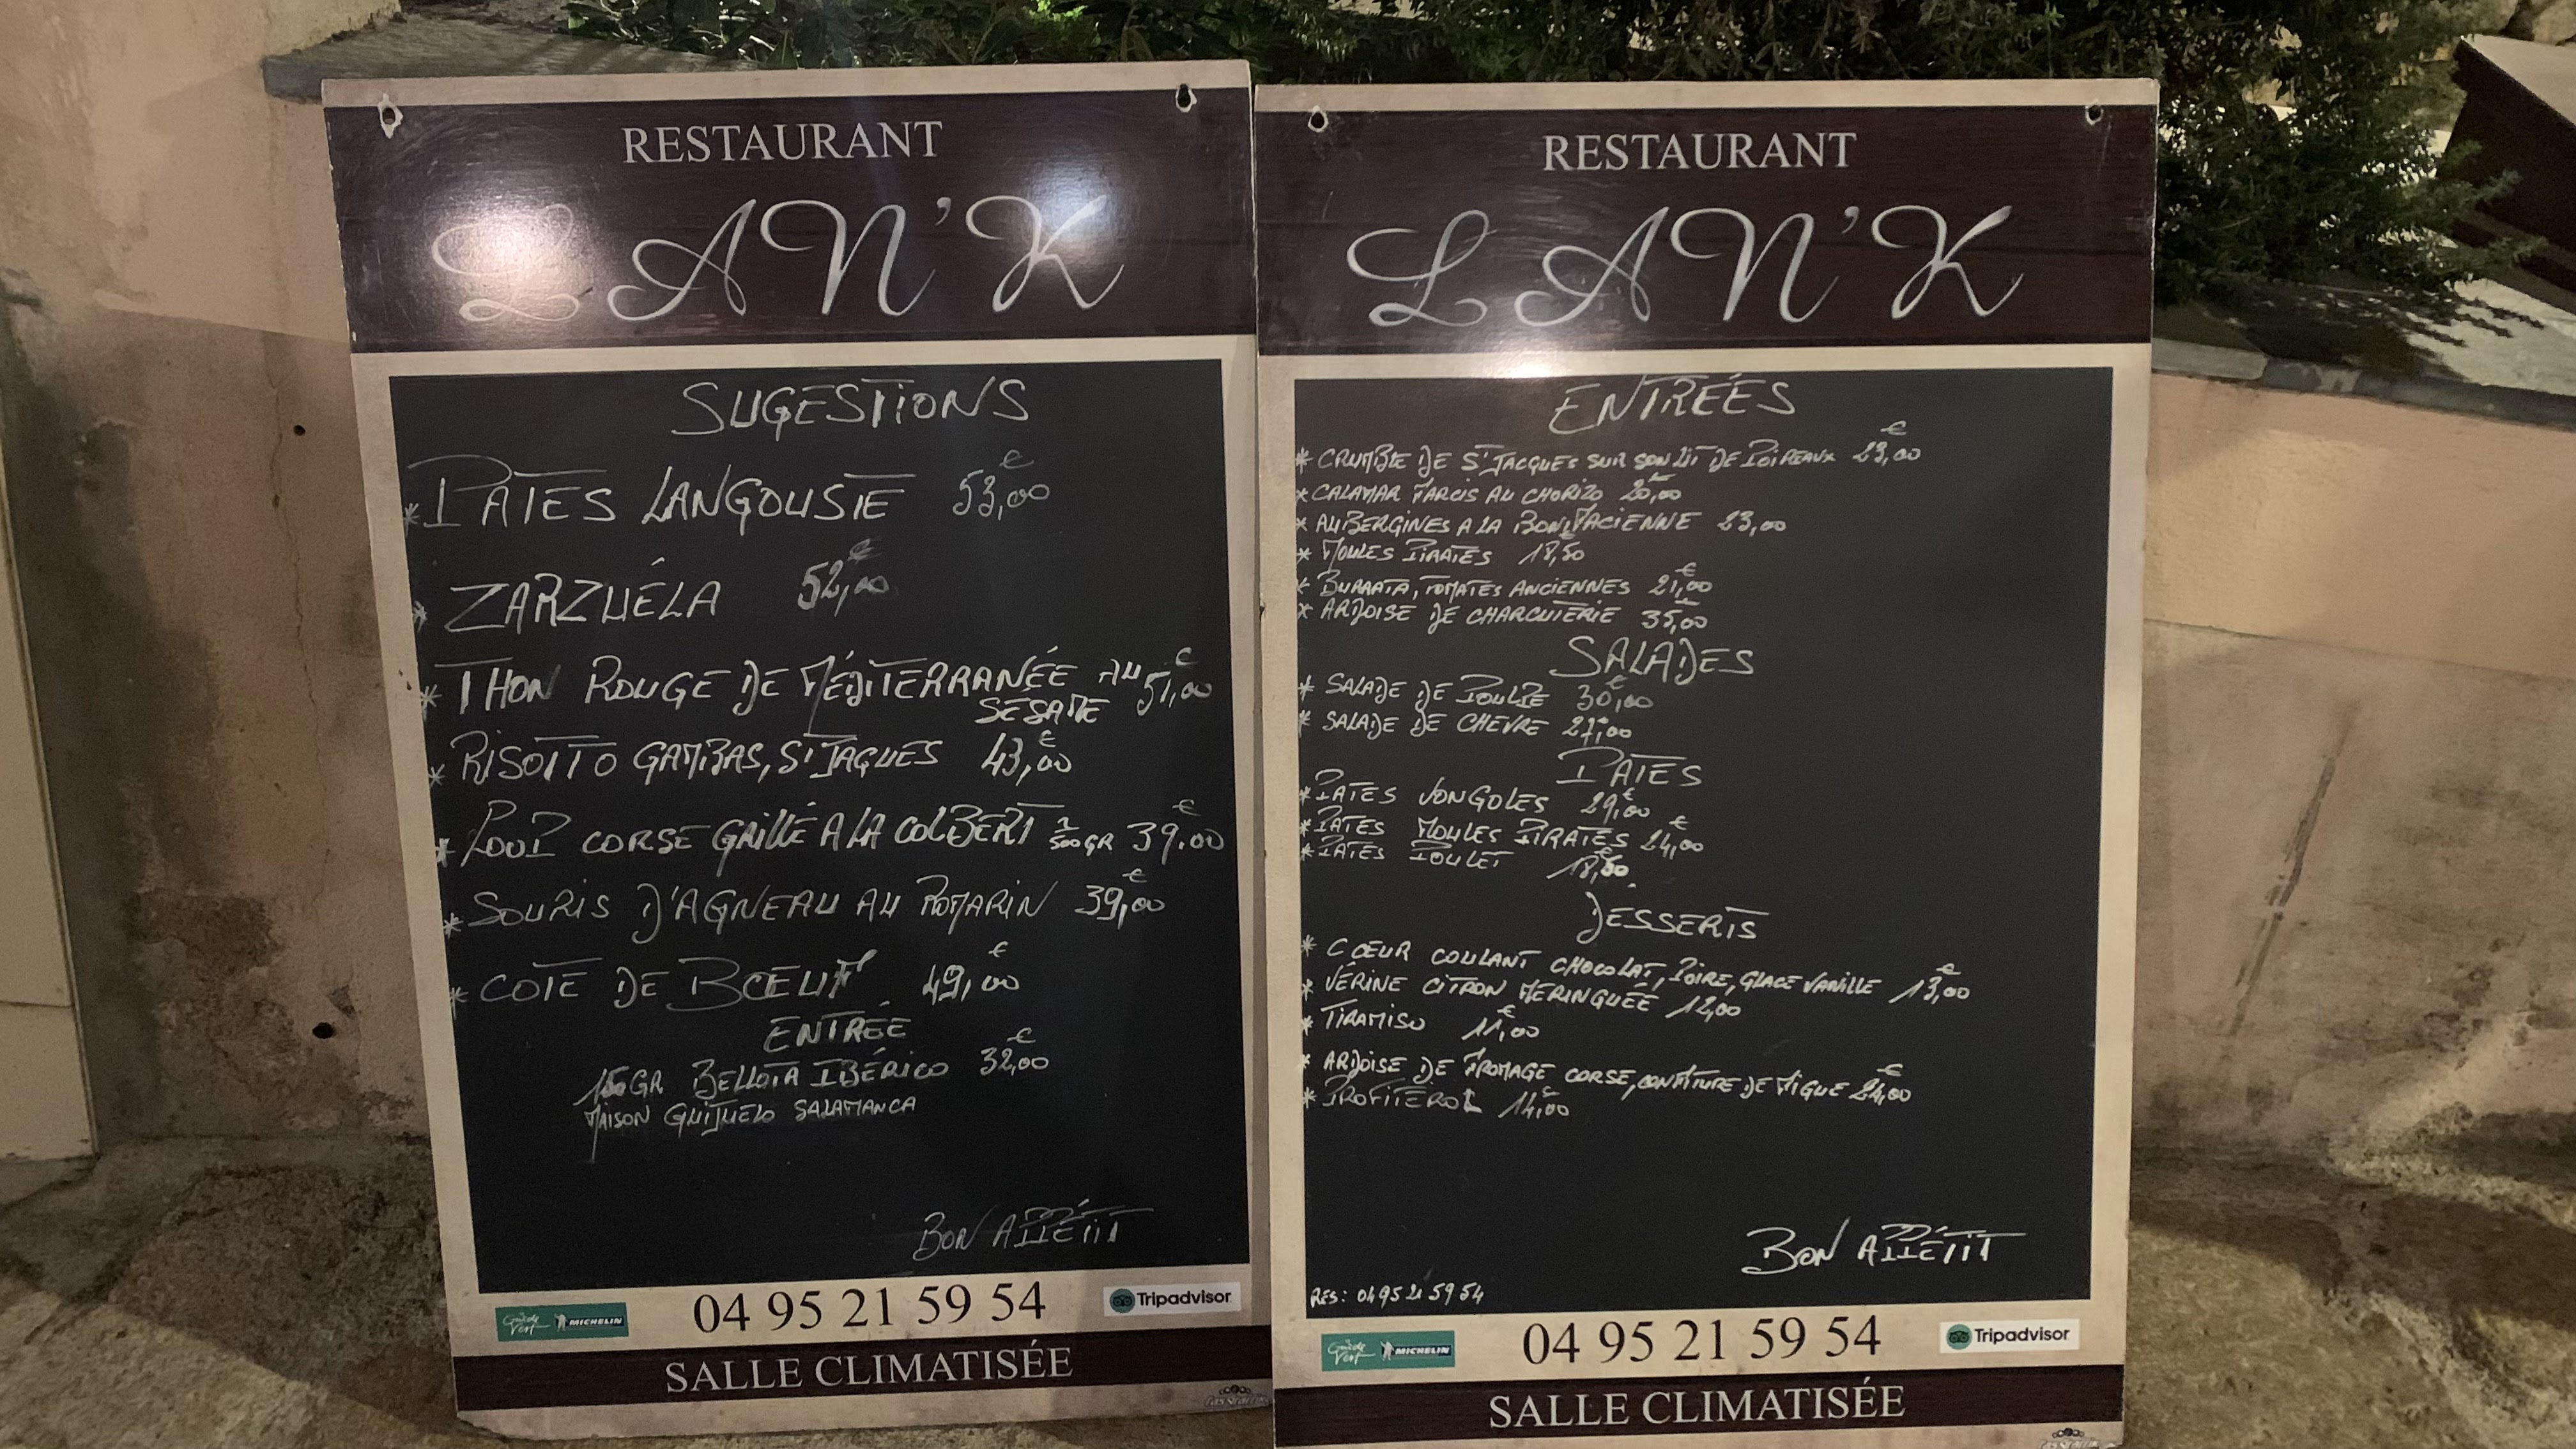 RESTAURANT
L AN'K
SUGESTIONS
* PATES LANGOUSTE 53,00€
* ZARZUÉLA 52,00€
* THON ROUGE DE MÉDITERRANÉE AU SESAME 51,00€
* RISOTTO GAMBAS, ST JAQUES 43,00€
* LOUP CORSE GRILLÉ A LA COLBERT 500GR 39.00€
* SOURIS D'AGNEAU AU ROMARIN 39,00€
* COTE DE BŒUF 49,00€
ENTRÉE
GR BELLOTA IBÉRICO 32,00€
MAISON GUIJUELO SALAMANCA
BON APPÉTIT
Guide Vert MICHELIN
04 95 21 59 54
Tripadvisor
SALLE CLIMATISÉE
RESTAURANT
L AN'K
ENTRÉES
* CRUMBLE DE ST JACQUES SUR SON LIT DE POIREAUX 23,00€
* CALAMAR FARCIS AU CHORIZO 20,00€
* AUBERGINES A LA BONIFACIENNE 23,00
* MOULES PIRATES 18,50€
* BURRATA, TOMATES ANCIENNES 21,00€
* ARDOISE DE CHARCUTERIE 35,00€
SALADES
* SALADE DE POULPE 30,00€
* SALADE DE CHEVRE 27,00€
PATES
* PATES VONGOLES 29,00€
* PATES MOULES PIRATES 24,00€
* PATES POULET
DÉSSERTS
* CŒUR COULANT CHOCOLAT, POIRE, GLACE VANILLE 13,00€
* VÉRINE CITRON MERINGUÉE 12,00
* TIRAMISU 11,00€
* ARDOISE DE FROMAGE CORSE, CONFITURE DE FIGUE 24,00€
* PROFITEROL 14,00€
BON APPÉTIT
RES: 04 95 21 59 54
Guide Vert MICHELIN
04 95 21 59 54
Tripadvisor
SALLE CLIMATISÉE